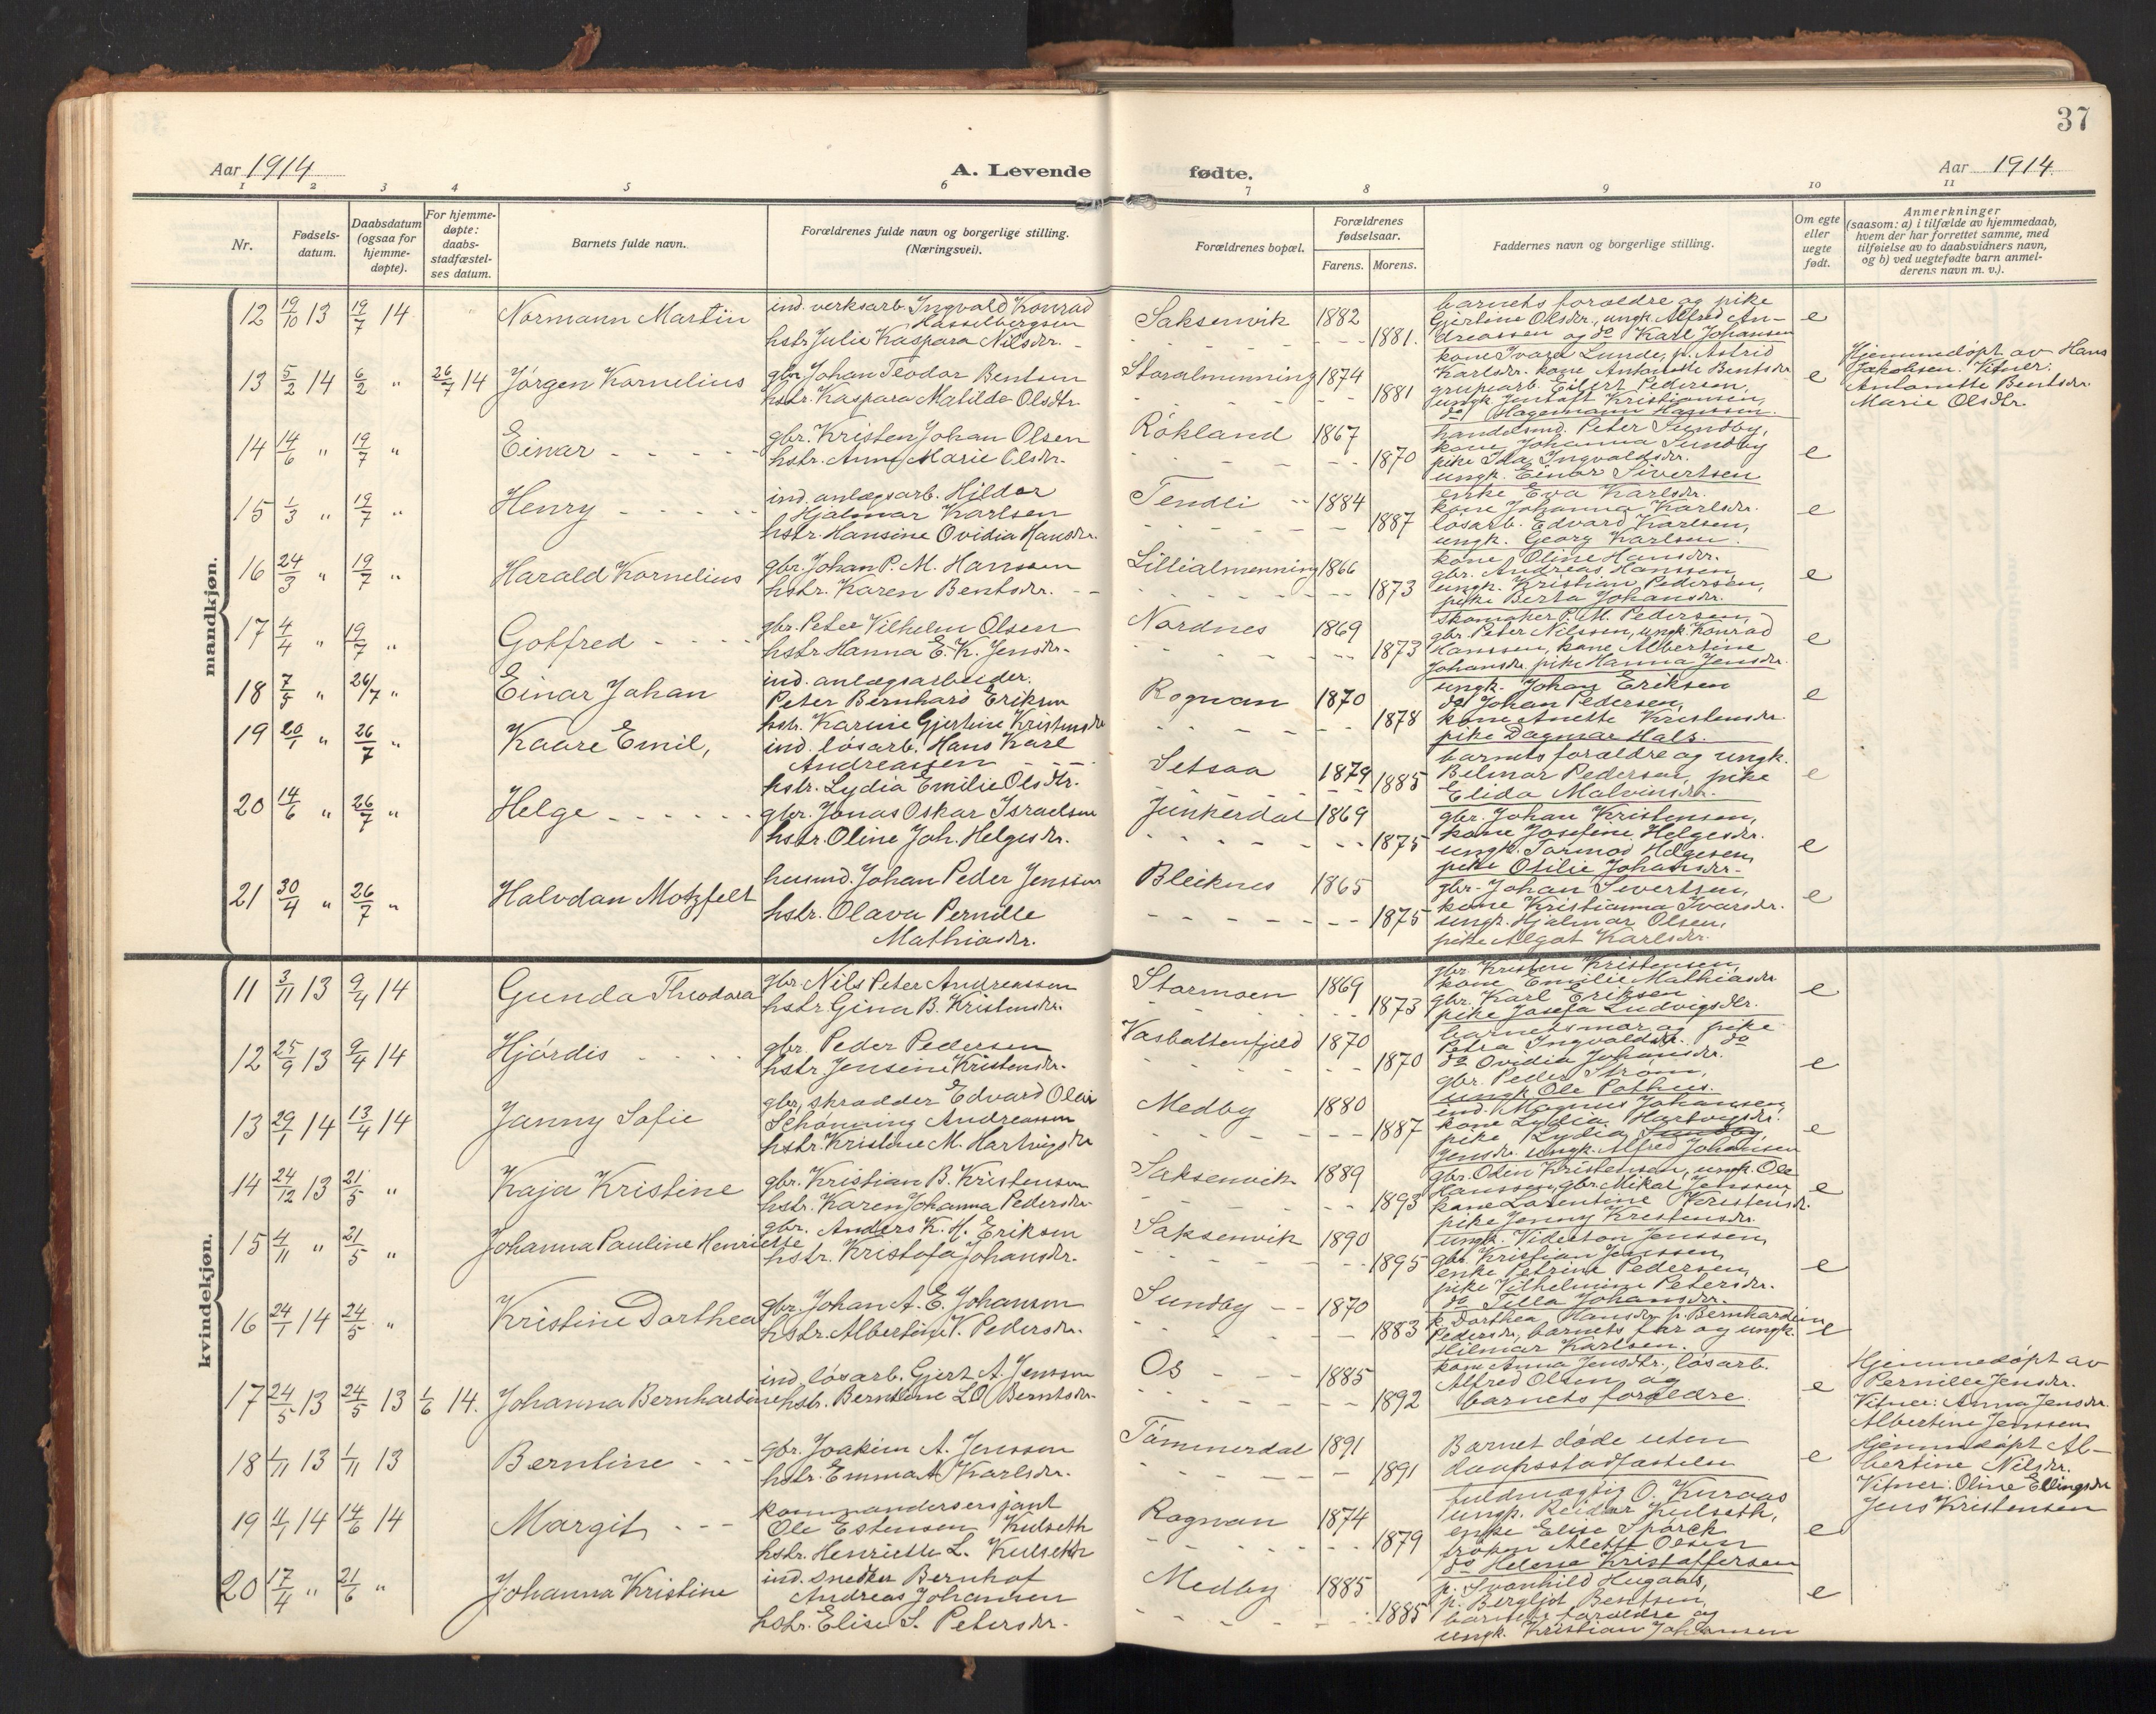 37
Aar 1914
A. Levende fødte.
Aar 1914.
1 2 3 4 5 6 7 8 9 10 11
Nr.
Fødsels-datum.
Daabsdatum (ogsaa for hjemme-døpte).
For hjemme-døpte: daabs-stadfæstel-ses datum.
Barnets fulde navn.
Forældrenes fulde navn og borgerlige stilling. (Næringsvei).
Forældrenes bopæl.
Forældrenes fødselsaar.
Farens. Morens.
Faddernes navn og borgerlige stilling.
Om egte eller uegte født.
Anmerkninger (saasom: a) i tilfælde av hjemmedaab, hvem der har forrettet samme, med tilføielse av to daabsvidners navn, og b) ved uegtefødte barn anmel-derens navn m. v.).
mandkjøn.
12 19/10 13 19/7 14 Normann Martin
ind. verksarb. Ingvald Konrad
Hasselbergsen
hstr. Julie Kaspara Nilsdr.
Saksenvik 1882 1881.
barnets forældre og pike
Gjertine Olsdr., ungk. Alfred An-
dreassen og do Karl Johansen
e
13 5/2 14 6/2 " 26/7 14 Jørgen Kornelius
gbr. Johan Teodor Bentsen
hstr. Kaspara Matilde Olsdtr.
Storalmenning 1874 1881
kone Ivara Lunde, p. Astrid
Karlsdr. kone Antonette Bentsdr.
grubearb. Eilert Pedersen,
ungk. Jentoft Kristiansen,
do Hagemann Hanssen.
e
Hjemmedøpt av Hans
Jakobsen. Vitner:
Antonette Bentsdr.
Marie Olsdtr.
14 14/6 " 19/7 " Einar
gbr. Kristen Johan Olsen
hstr. Anne Marie Olsdr.
Røkland 1867 1870
handelsmd. Peter Sundby,
kone Johanna Sundby
pike Ida Ingvaldsdr.
ungk. Einar Sivertsen
e
15 1/3 " 19/7 " Henry
ind. anlægsarb. Hildor
Hjalmar Karlsen
hstr. Hansine Ovidia Hansdr.
Tendli 1884 1887
enke Eva Karlsdr.
kone Johanna Karlsdr.
løsarb. Edvard Karlsen,
ungk. Georg Karlsen.
e
16 24/3 " 19/7 " Harald Kornelius
gbr. Johan P. M. Hanssen
hstr. Karen Bentsdr.
Lillealmenning 1866 1873
kone Oline Hansdr.
gbr. Andreas Hanssen,
ungk. Kristian Pedersen,
pike Berta Johansdr.
e
17 4/4 " 19/7 " Gotfred
gbr. Peter Vilhelm Olsen
hstr. Hanna E. K. Jensdr.
Nordnes 1869 1873
skomaker P. M. Pedersen,
gbr. Peter Nilssen, ungk. Konrad
Hanssen, kone Albertine
Johansdr. pike Hanna Jensdr.
e
18 7/5 " 26/7 " Einar Johan
ind. anlægsarbeider.
Peter Bernhard Eriksen
hstr. Karine Gjertine Kristensdr.
Rognan 1870 1878
ungk. Johan Eriksen
do Johan Pedersen,
kone Anette Kristensdr.
pike Dagmar Hals.
e
19 20/1 " 26/7 " Kaare Emil,
ind. løsarb. Hans Karl
Andreassen
hstr. Lydia Emilie Olsdtr.
Setsaa 1879 1885
barnets forældre og ungk.
Belmar Pedersen, pike
Elida Malvinsdr.
e
20 14/6 " 26/7 " Helge
gbr. Jonas Oskar Israelsen
hstr. Oline Joh. Helgesdr.
Junkerdal 1869 1875
gbr. Johan Kristensen,
kone Josefine Helgesdr.
ungk. Tormod Helgesen,
pike Otilie Johansdr.
e
21 30/4 " 26/7 " Halvdan Motzfelt
husmd. Johan Peder Jenssen
hstr. Olava Pernille
Mathiasdr.
Bleiknes 1865 1875
gbr. Johan Sivertsen,
kone Kristianna Ivarsdr.
ungk. Hjalmar Olsen,
pike Algot Karlsdr.
e
kvindekjøn.
11 3/11 13 9/4 14 Gunda Theodora
gbr. Nils Peter Andreassen
hstr. Gina B. Kristensdr.
Stormoen 1869 1873
gbr. Kristen Kristensen,
kone Emilie Mathiasdr.
gbr. Karl Eriksen
pike Josefa Ludvigsdtr.
e
12 25/9 13 9/4 14 Hjørdis
gbr. Peder Pedersen
hstr. Jensine Kristensdr.
Vasbottenfjeld 1870 1870
barnets mor og pike
Petra Ingvaldsdr. do
do Ovidia Johansdr.
gbr. Peder Strøm,
ungk. Ole Pothus.
e
13 29/1 14 13/4 14 Janny Sofie
gbr. skrædder Edvard Olai
Schønning Andreassen
hstr. Kristine M. Hartvigsdr.
Medby 1880 1887
ind. Magnus Johansen,
kone Lydia Hartvigsdr.
pike Lydia Sundby
Jensdr. ungk. Alfred Johansen
e
14 24/12 13 21/5 " Kaja Kristine
gbr. Kristian B. Kristensen
hstr. Karen Johanna Pedersdr.
Saksenvik 1889 1893
gbr. Odin Kristensen, ungk. Ole
Hanssen, gbr. Mikal Jenssen,
kone Larentine Kristensdr.
pike Jenny Kristensdr.
e
15 4/11 " 21/5 " Johanna Pauline Henriette
gbr. Anders K. H. Eriksen
hstr. Kristofa Johansdr.
Saksenvik 1890 1895
ungk. Viderton Jenssen,
gbr. Kristian Jenssen,
enke Petrine Pedersen,
pike Vilhelmine Petersdr.
do Tilla Johansdr.
e
16 24/1 14 24/5 " Kristine Dorthea
gbr. Johan A. E. Johansen
hstr. Albertine V. Pedersdr.
Sundby 1870 1883
k. Dorthea Hansdr. p. Bernhardine
Pedersdr., barnets far og ungk.
Hilmar Karlsen.
e
17 24/5 13 24/5 13 1/6 14. Johanna Bernhardine
ind. løsarb. Gjert A. Jenssen
hstr. Berntine L O Berntsdr.
Os 1885 1892
kone Anna Jensdtr., løsarb.
Alfred Olsen og
barnets forældre.
e
Hjemmedøpt av
Pernille Jensdr.
Vitner: Anna Jensdr.
Albertine Jenssen
18 1/11 13 1/11 13 Berntine
gbr. Joakim A. Jenssen
hstr. Emma A Karlsdr.
Tømmerdal 1891 1891
Barnet døde uten
daapsstadfæstelse
e
Hjemmedøpt Al-
bertine Nilsdr.
Vitner: Oline Ellingsdr.
Jens Kristensen
19 4/1 14 14/6 14 Margit
kommandersersjant
Ole Estensen Kulseth
hstr. Henriette L. Kulseth
Rognan 1874 1879
fuldmægtig O. Kuraas
ungk. Reidar Kulseth,
enke Elise Spørck
frøken Aleth Olsen
do Helene Kristoffersen
e
20 17/4 " 21/6 " Johanna Kristine
ind. snedker Bernhof
Andreas Johansen
hstr. Elise S. Petersdr.
Medby 1885 1885
p. Svanhild Hugaas,
p. Bergljot Bentsen,
barnets forældre og
ungk. Kristian Johansen
e